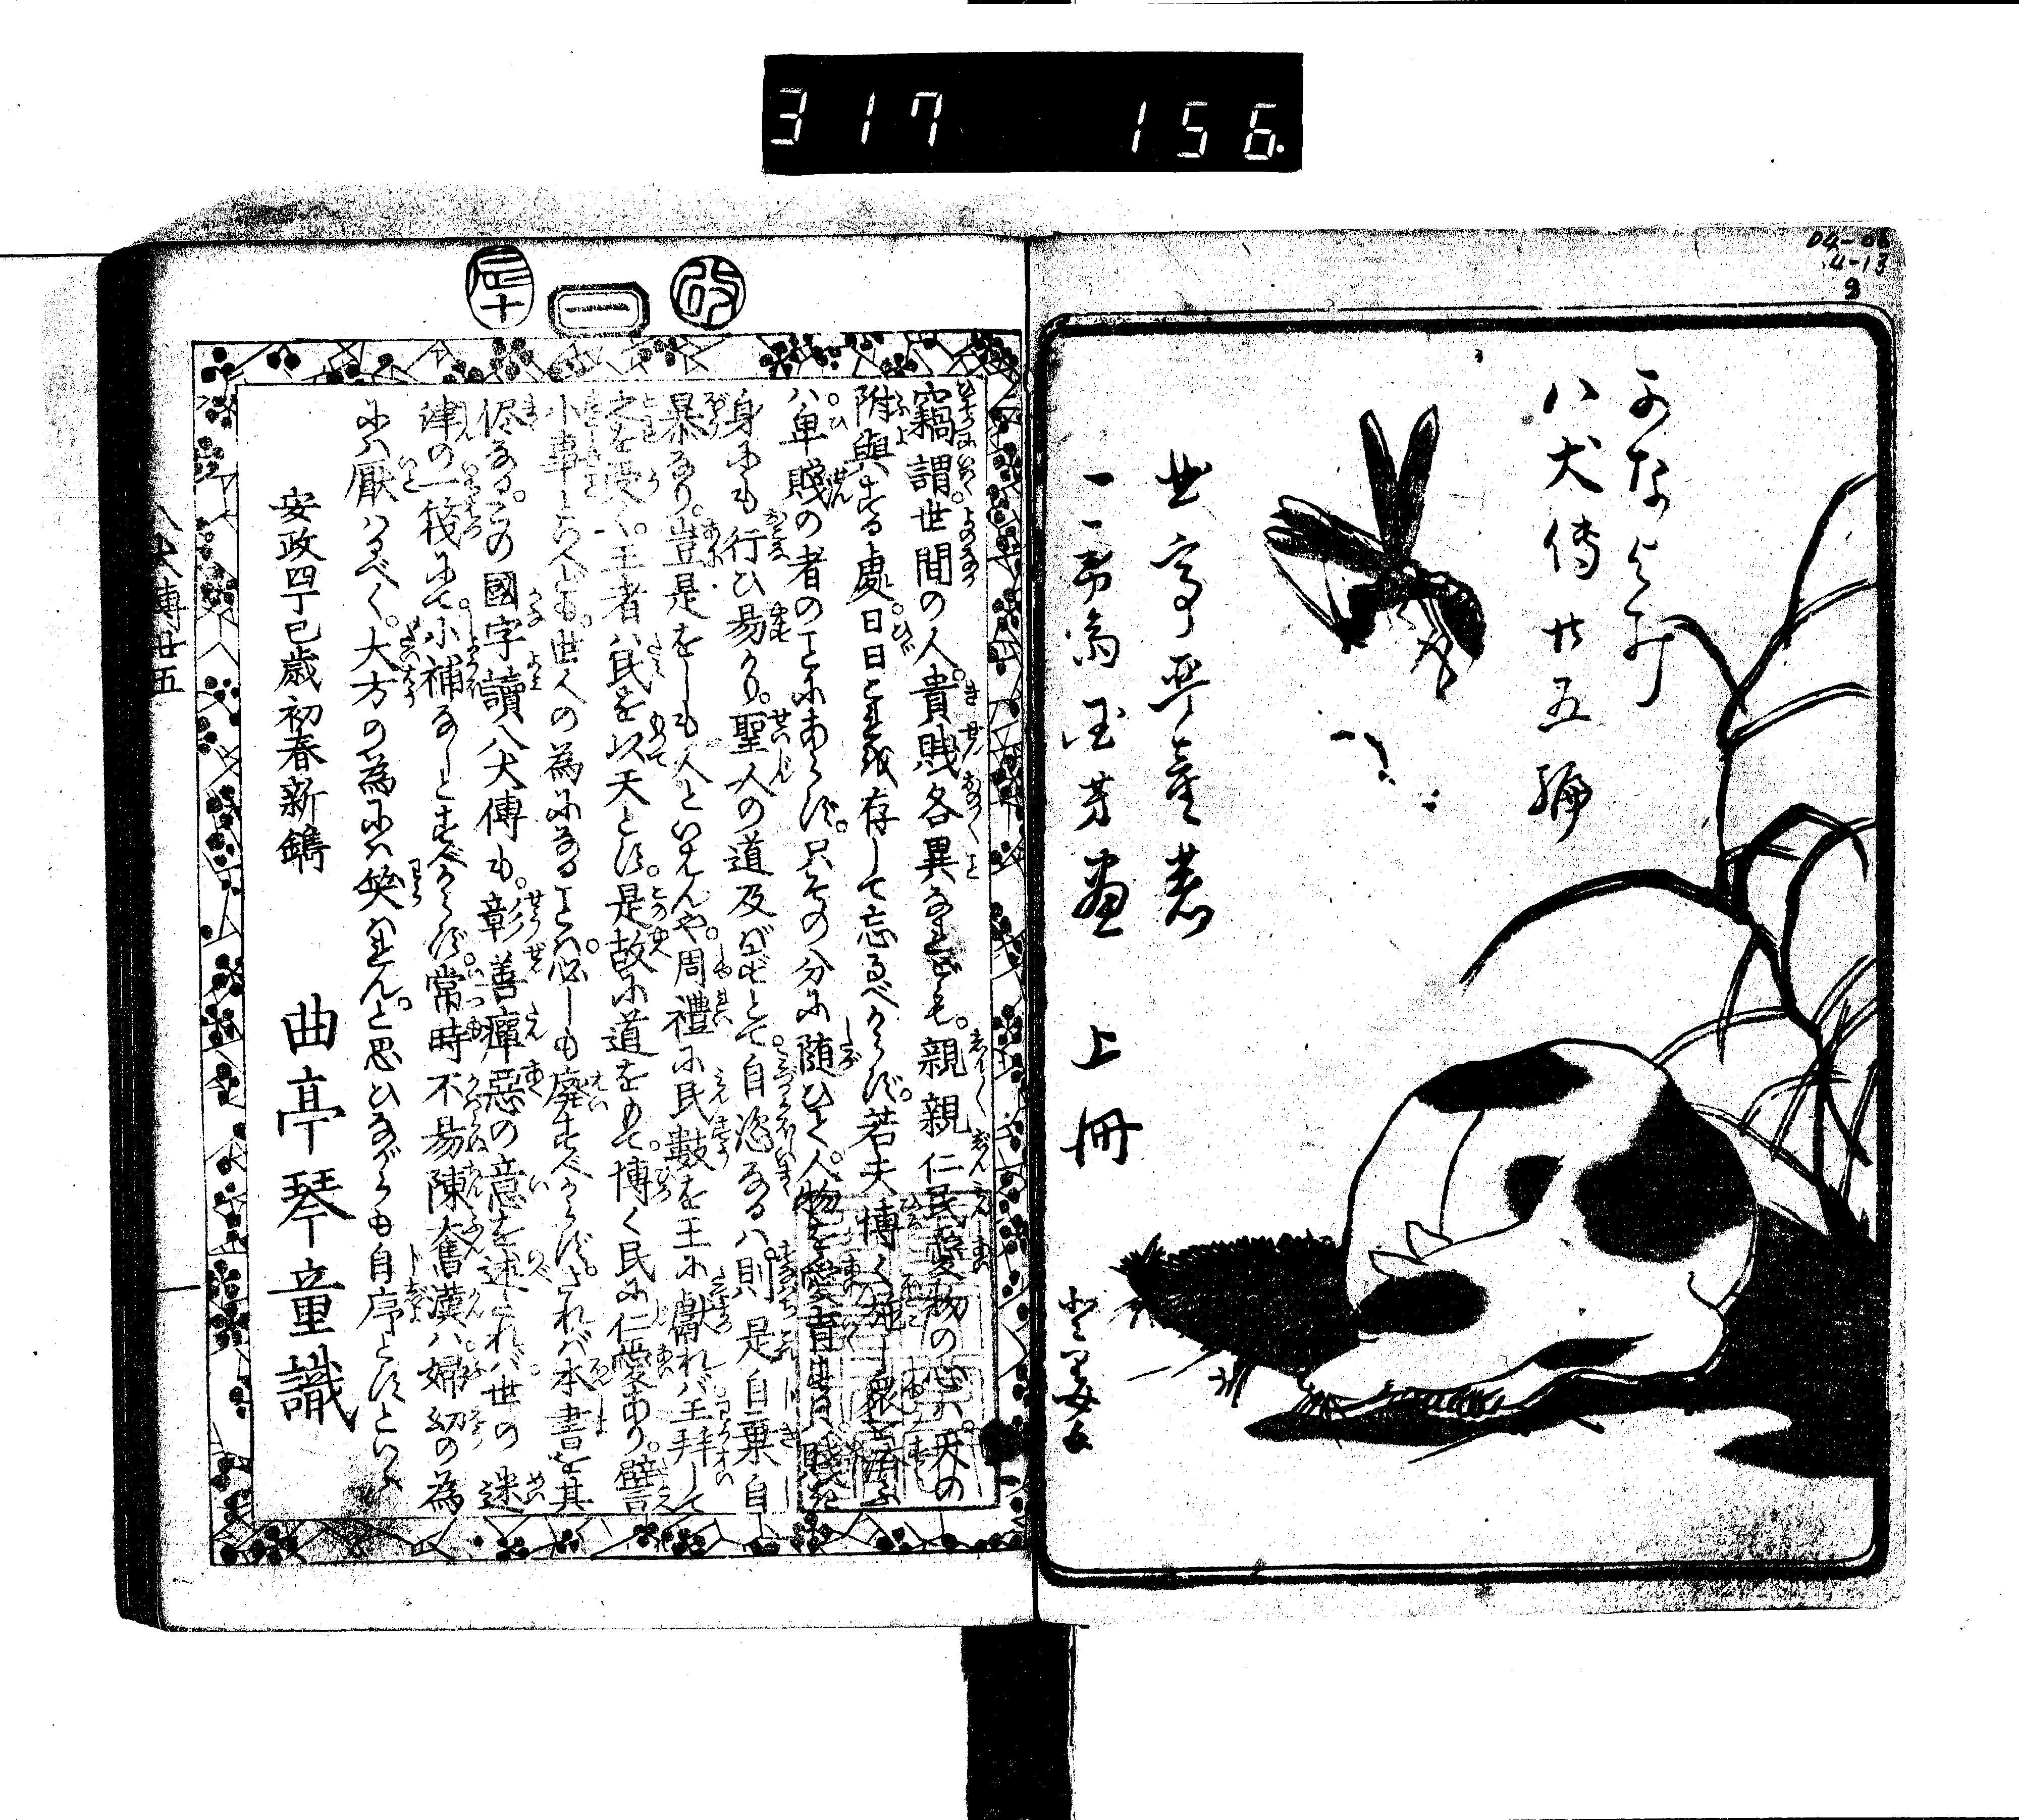 317 156
04-06
4-13
8
かなよみ
八犬傳廿五編
曲亭琴童著
一勇齋国芳画
上冊
改
一
竊謂世間の人。貴賎各異なれども。親親仁民愛物の心ハ。天の
附與する處。日日これ存して忘るべからず。若夫博く施し衆を済ふ
ハ卑賤の者のことにあらず。只その分に随ひて。人物を愛育貴賤
身にも行ひ易かり。聖人の道及ばずとて。自恣なるハ。則是自棄自
暴なり。豈是をしも人といはんや。周禮に民數を王に獻れバ王拜して
之を受く。王者ハ民を以天とす。是故に道をもて。博く民に仁愛あり。譬
小事といへども。世人の為になることハ。必しも廃すべからず。されバ本書も其
侭なる。この國字讀八犬傳も。彰善癉惡の意を述これバ世の迷
津の一筏にて。小補なしとすべからず。常時不易陳奮漢ハ婦幼の為
にハ厭ハるべく。大方の為にハ笑はれんと思ひながらも自序とすといふ
安政四丁巳歳初春新鐫
曲亭琴童識
八犬傳廿五